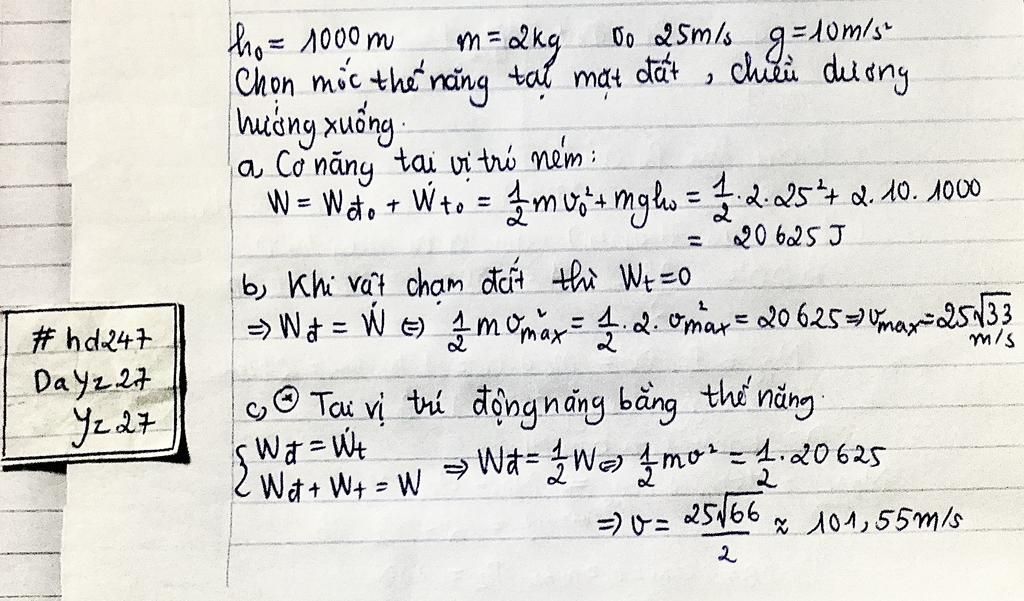 h₀ = 1000 m m = 2kg v₀ 25m/s g = 10m/s²
Chọn mốc thế năng tại mặt đất, chiều dương
hướng xuống.
a, Cơ năng tại vị trí ném:
W = Wđ₀ + Wt₀ = 1/2 mv₀² + mgh₀ = 1/2 . 2 . 25² + 2. 10. 1000
= 20 625 J
b, Khi vật chạm đất thì Wt = 0
⇒ Wđ = W ⇔ 1/2 mv²max = 1/2 . 2. v²max = 20 625 ⇒ vmax = 25√33 m/s
c, * Tại vị trí động năng bằng thế năng.
{ Wđ = Wt
{ Wđ + Wt = W ⇒ Wđ = 1/2 W ⇔ 1/2 mv² = 1/2 . 20 625
⇒ v = 25√66 / 2 ≈ 101,55 m/s
# hd247
DaYz27
Yz27